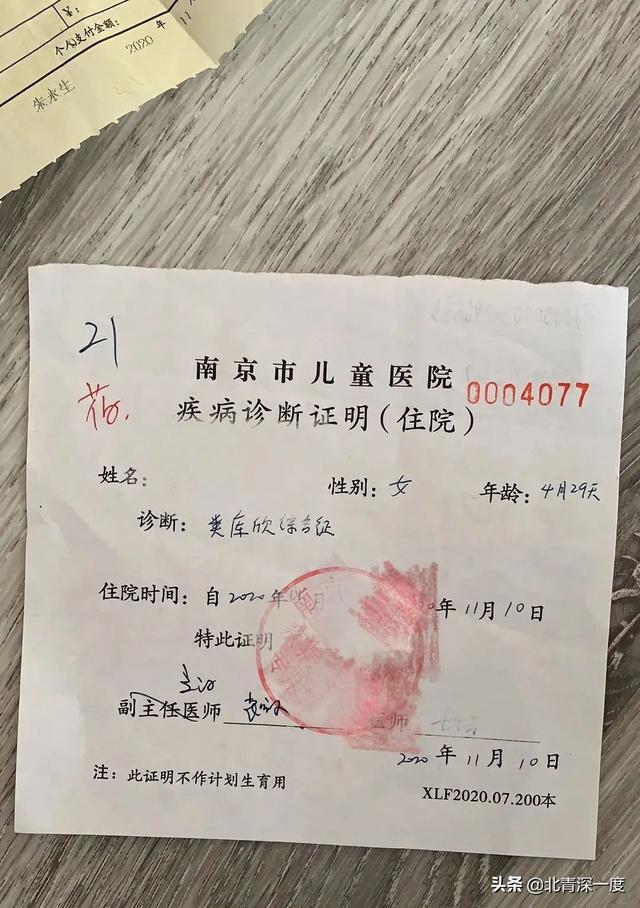 ¥:
个人支付金额:
2020 年 11
21
南京市儿童医院
0004077
疾病诊断证明(住院)
姓名: 性别: 女 年龄: 4月29天
诊断: 类库欣综合征
住院时间: 自2020年 月 0年11月10日
特此证明
副主任医师 医师
2020年11月10日
注: 此证明不作计划生育用
XLF2020.07.200本
头条 @北青深一度